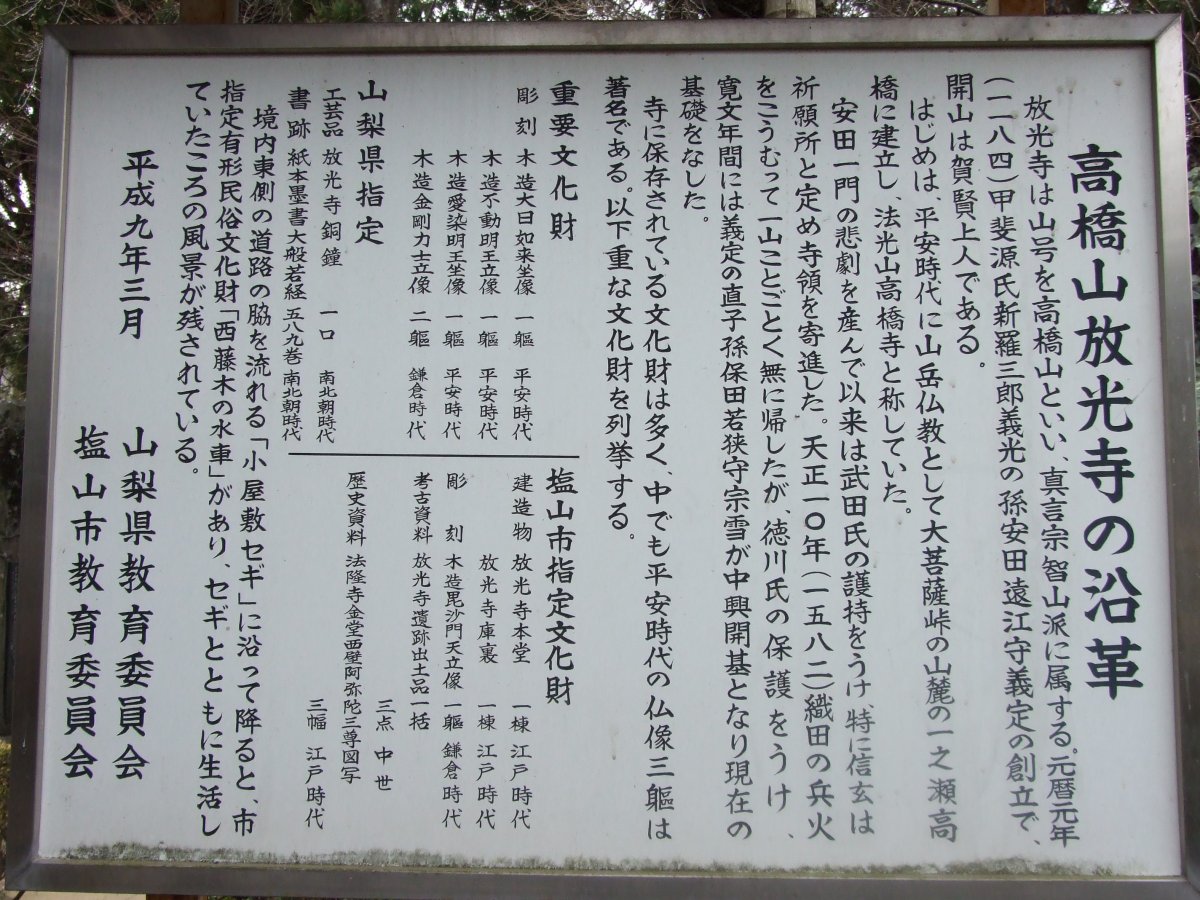 高橋山放光寺の沿革
放光寺は山号を高橋山といい、真言宗智山派に属する。元暦元年
(一一八四)甲斐源氏新羅三郎義光の孫安田遠江守義定の創立で、
開山は賀賢上人である。
はじめは、平安時代に山岳仏教として大菩薩峠の山麓の一之瀬高
橋に建立し、法光山高橋寺と称していた。
安田一門の悲劇を産んで以来は武田氏の護持をうけ、特に信玄は
祈願所と定め寺領を寄進した。天正一〇年(一五八二)織田の兵火
をこうむって一山ことごとく無に帰したが、徳川氏の保護をうけ、
寛文年間には義定の直子孫保田若狭守宗雪が中興開基となり現在の
基礎をなした。
寺に保存されている文化財は多く、中でも平安時代の仏像三軀は
著名である。以下重な文化財を列挙する。
重要文化財
彫刻 木造大日如来坐像 一軀 平安時代
木造不動明王立像 一軀 平安時代
木造愛染明王坐像 一軀 平安時代
木造金剛力士立像 二軀 鎌倉時代
山梨県指定
工芸品 放光寺銅鐘 一口 南北朝時代
書跡 紙本墨書大般若経 五八九巻 南北朝時代
塩山市指定文化財
建造物 放光寺本堂 一棟 江戸時代
放光寺庫裏 一棟 江戸時代
彫刻 木造毘沙門天立像 一軀 鎌倉時代
考古資料 放光寺遺跡出土品一括
三点 中世
歴史資料 法隆寺金堂西壁阿弥陀三尊図写
三幅 江戸時代
境内東側の道路の脇を流れる「小屋敷セギ」に沿って降ると、市
指定有形民俗文化財「西藤木の水車」があり、セギとともに生活し
ていたころの風景が残されている。
平成九年三月
山梨県教育委員会
塩山市教育委員会